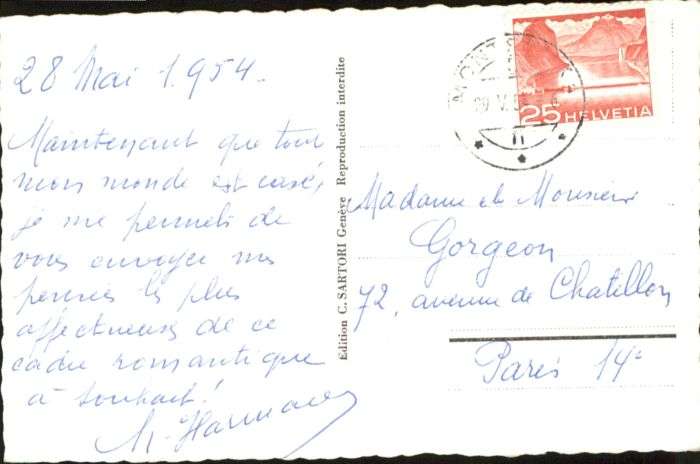 28 Mai 1954.
Maintenant que tout
mon monde est casé,
je me permets de
vous envoyer mes
pensées les plus
affectueuses de ce
cadre romantique
à souhait!
Edition C. SARTORI Genève Reproduction interdite
25 HELVETIA
Madame et Monsieur
Gorgeon
72, avenue de Chatillon
Paris 14e